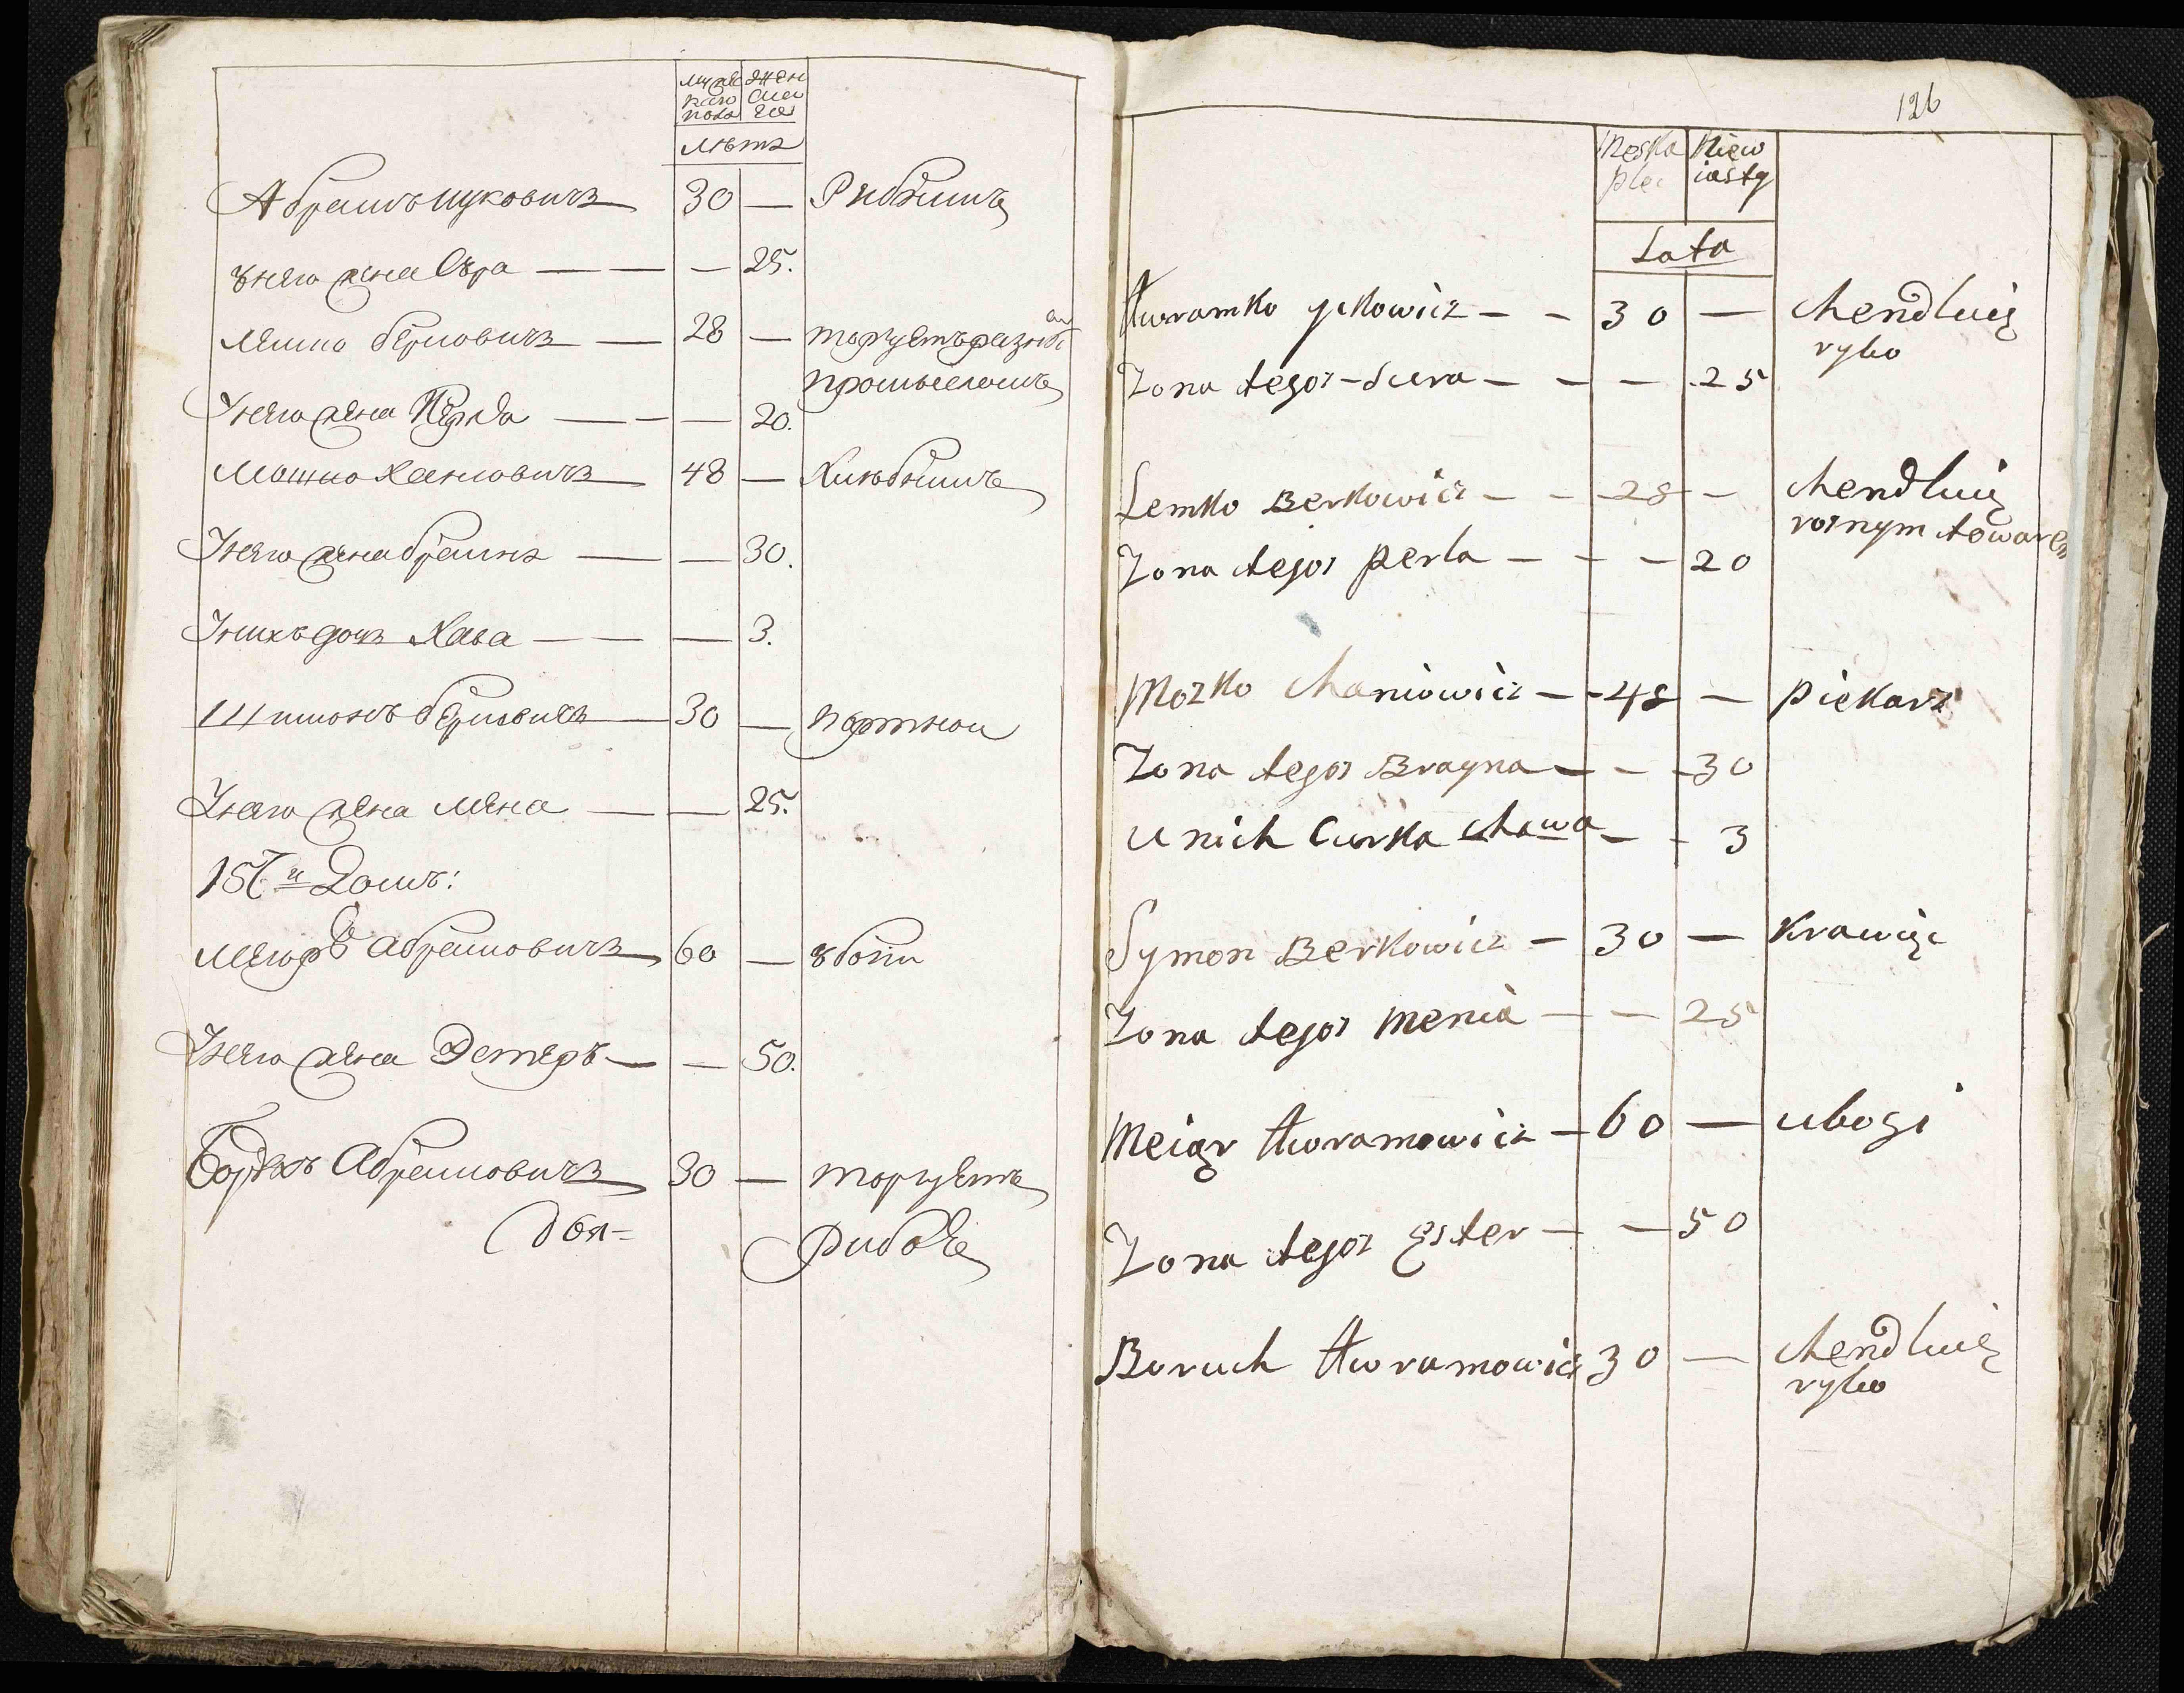 муже
каго
пола
жен
ска
го
лѣтъ
Абрамъ ицковичъ 30 — Рибникъ
унего жена Сора — — — 25.
Лемко берковичъ — 28 — торгуетъ разнимъ
промысломъ
Унего жена Перла — — — 20.
Мошко Хаимовичъ 48 — Хлебникъ
Унего жена браина — — 30.
Унихъ дочъ Хава — — — 3.
Шимонъ берковичъ — 30 — портнои
Унего жена Мена — — 25.
157й Домъ:
Меюръ Абрамовичъ 60 — убоги
Унего жена Эстеръ — — 50.
Борухъ Абрамовичъ 30 — торгуетъ
Рибою
126
Meska
płec
Niew
iasty
Lata
Awramko yckowicz — — 30 — chendluię
rybo
Zona tegoz — Sura — — — 25
Lemko Berkowicz — — 28 — chendluię
roznym towarem
Zona tegoz Perla — — — 20
Mozko Chaniowicz — — 48 — piekarz
Zona tegoz Brayna — — — 30
U nich Curka Chawa — — 3
Symon Berkowicz — 30 — Krawięc
Zona tegoz Menia — — 25
Meięr Awramowicz — 60 — ubogi
Zona tegoz Ester — — 50
Boruch Awramowicz 30 — chendluię
rybo